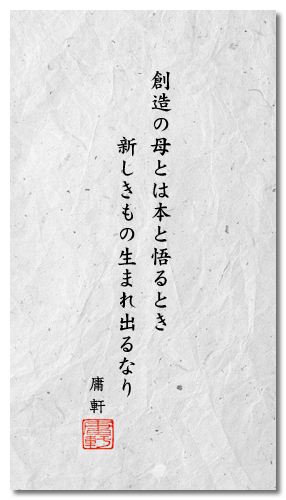 創造の母とは本と悟るとき
新しきもの生まれ出るなり
庸軒